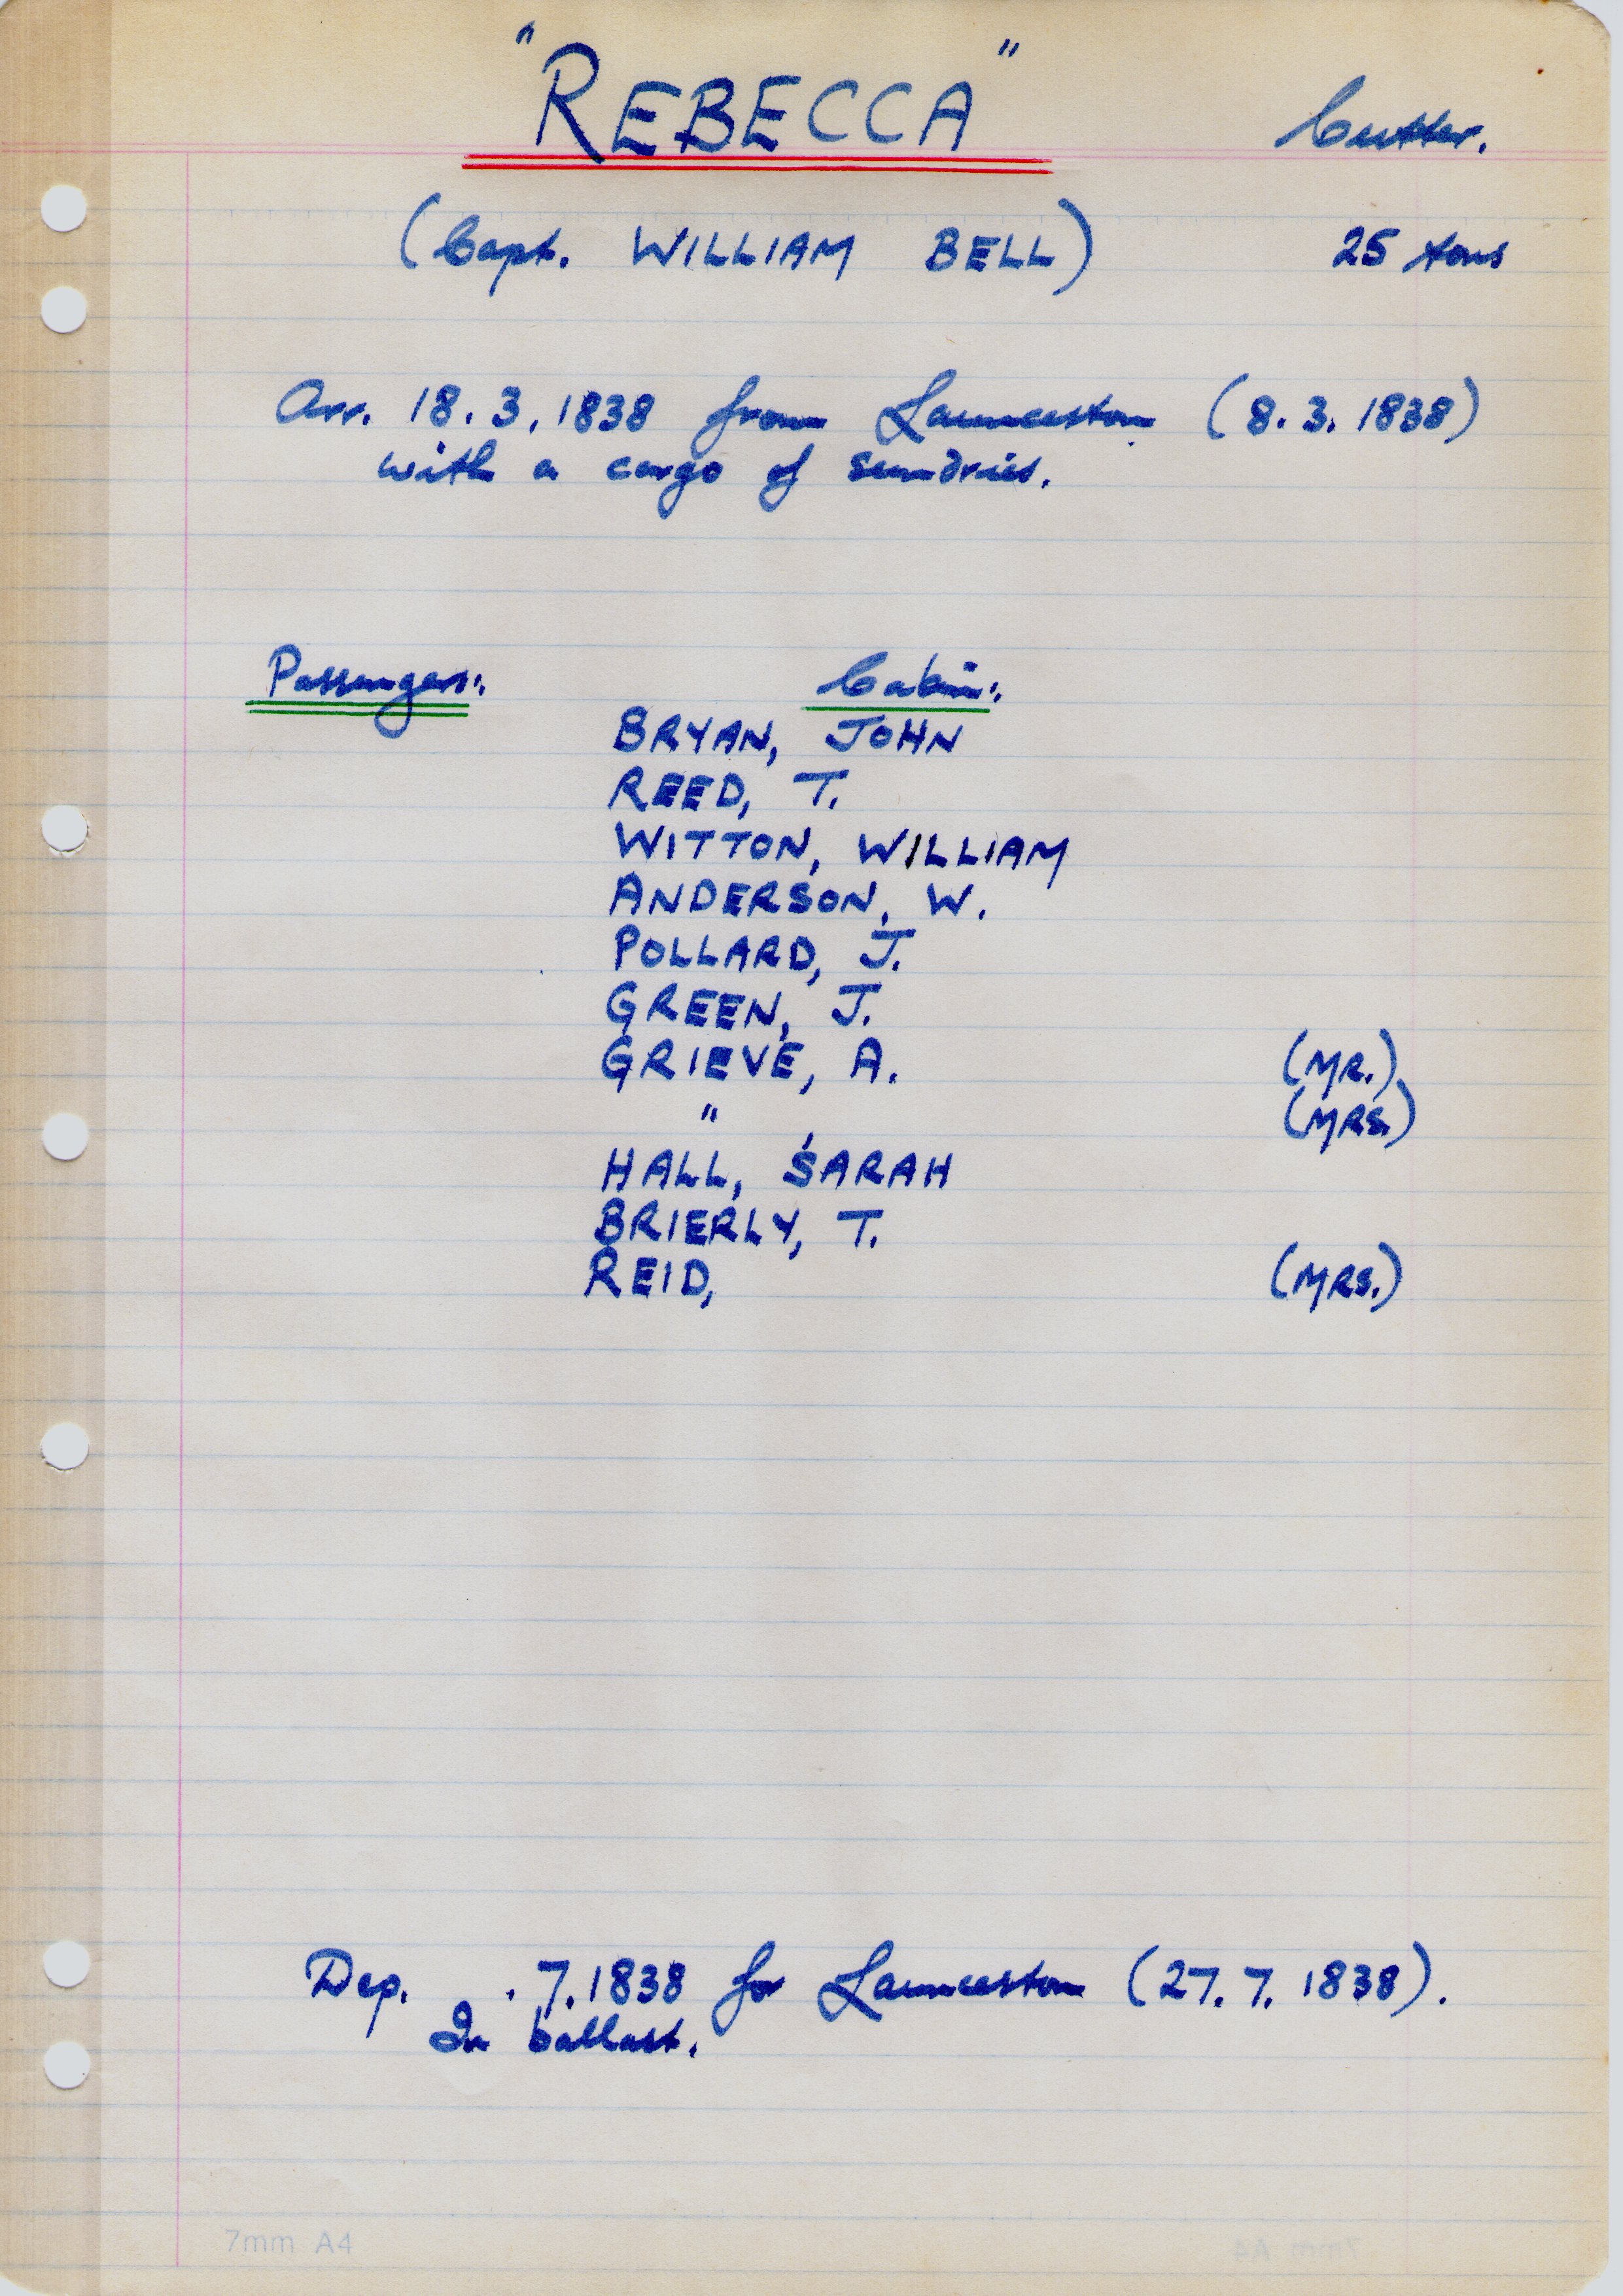 "REBECCA" Cutter.
(Capt. WILLIAM BELL) 25 tons
Arr. 18.3.1838 from Launceston (8.3.1838)
with a cargo of sundries.
Passengers: Cabin:
BRYAN, JOHN
REED, T.
WITTON, WILLIAM
ANDERSON, W.
POLLARD, J.
GREEN, J.
GRIEVE, A. (MR.)
" , (MRS.)
HALL, SARAH
BRIERLY, T.
REID, (MRS.)
Dep. .7.1838 for Launceston (27.7.1838).
In ballast.
7mm A4